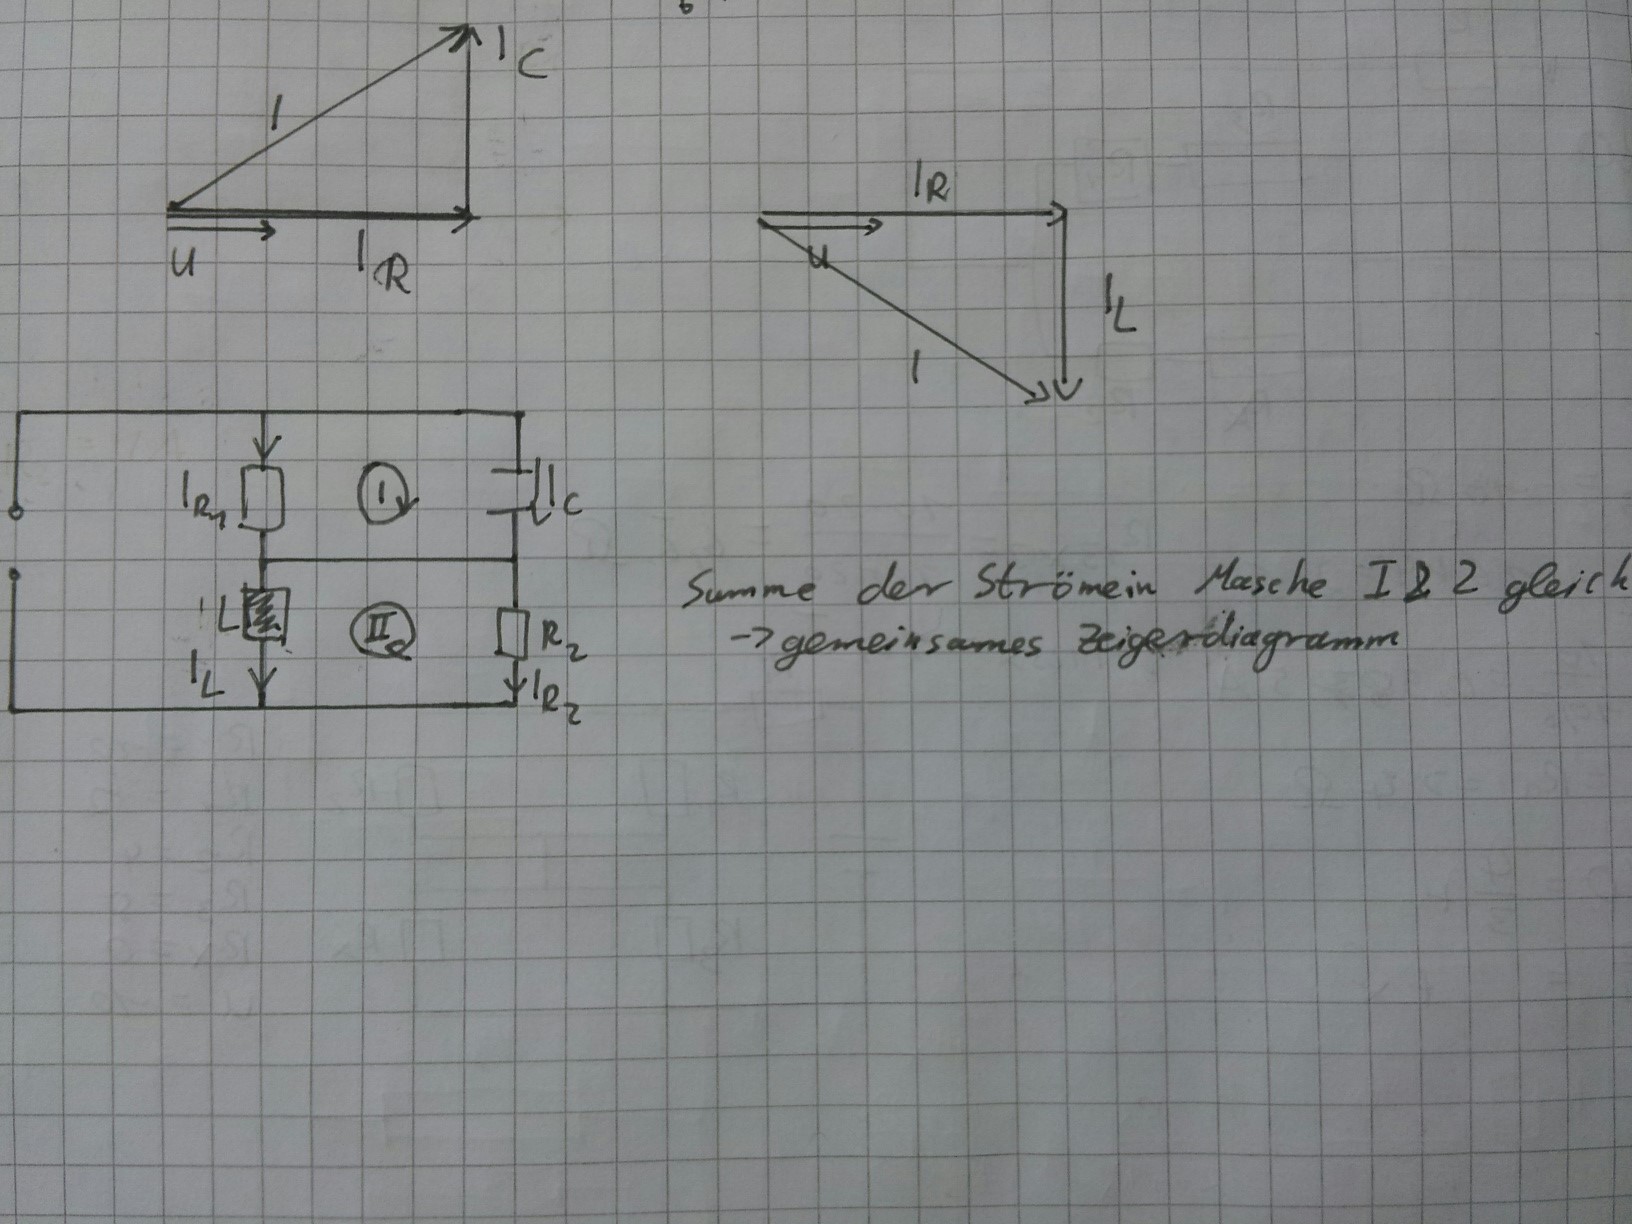 I
I C
U
I R
I R
U
I L
I
I R1
I
I C
L
II
R2
I L
I R2
Summe der Strömein Masche I & 2 gleich
-> gemeinsames Zeigerdiagramm